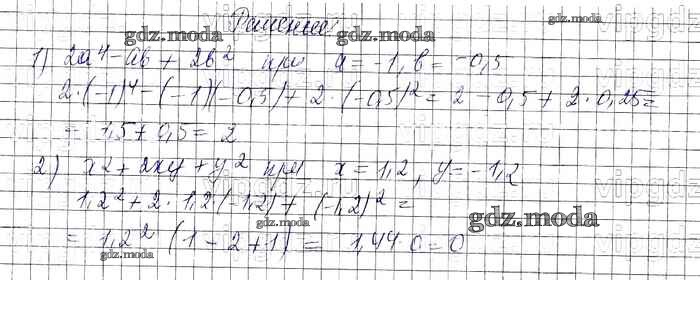 Решение
1) 2a⁴-ab+2b² при a=-1, b=-0,5
2·(-1)⁴-(-1)(-0,5)+2·(-0,5)²=2-0,5+2·0,25=
=1,5+0,5=2
2) x²+2xy+y² при x=1,2, y=-1,2
1,2²+2·1,2·(-1,2)+(-1,2)²=
=1,2²(1-2+1)=1,44·0=0
gdz.moda
gdz.moda
gdz.moda
gdz.moda
gdz.moda
gdz.moda
gdz.moda